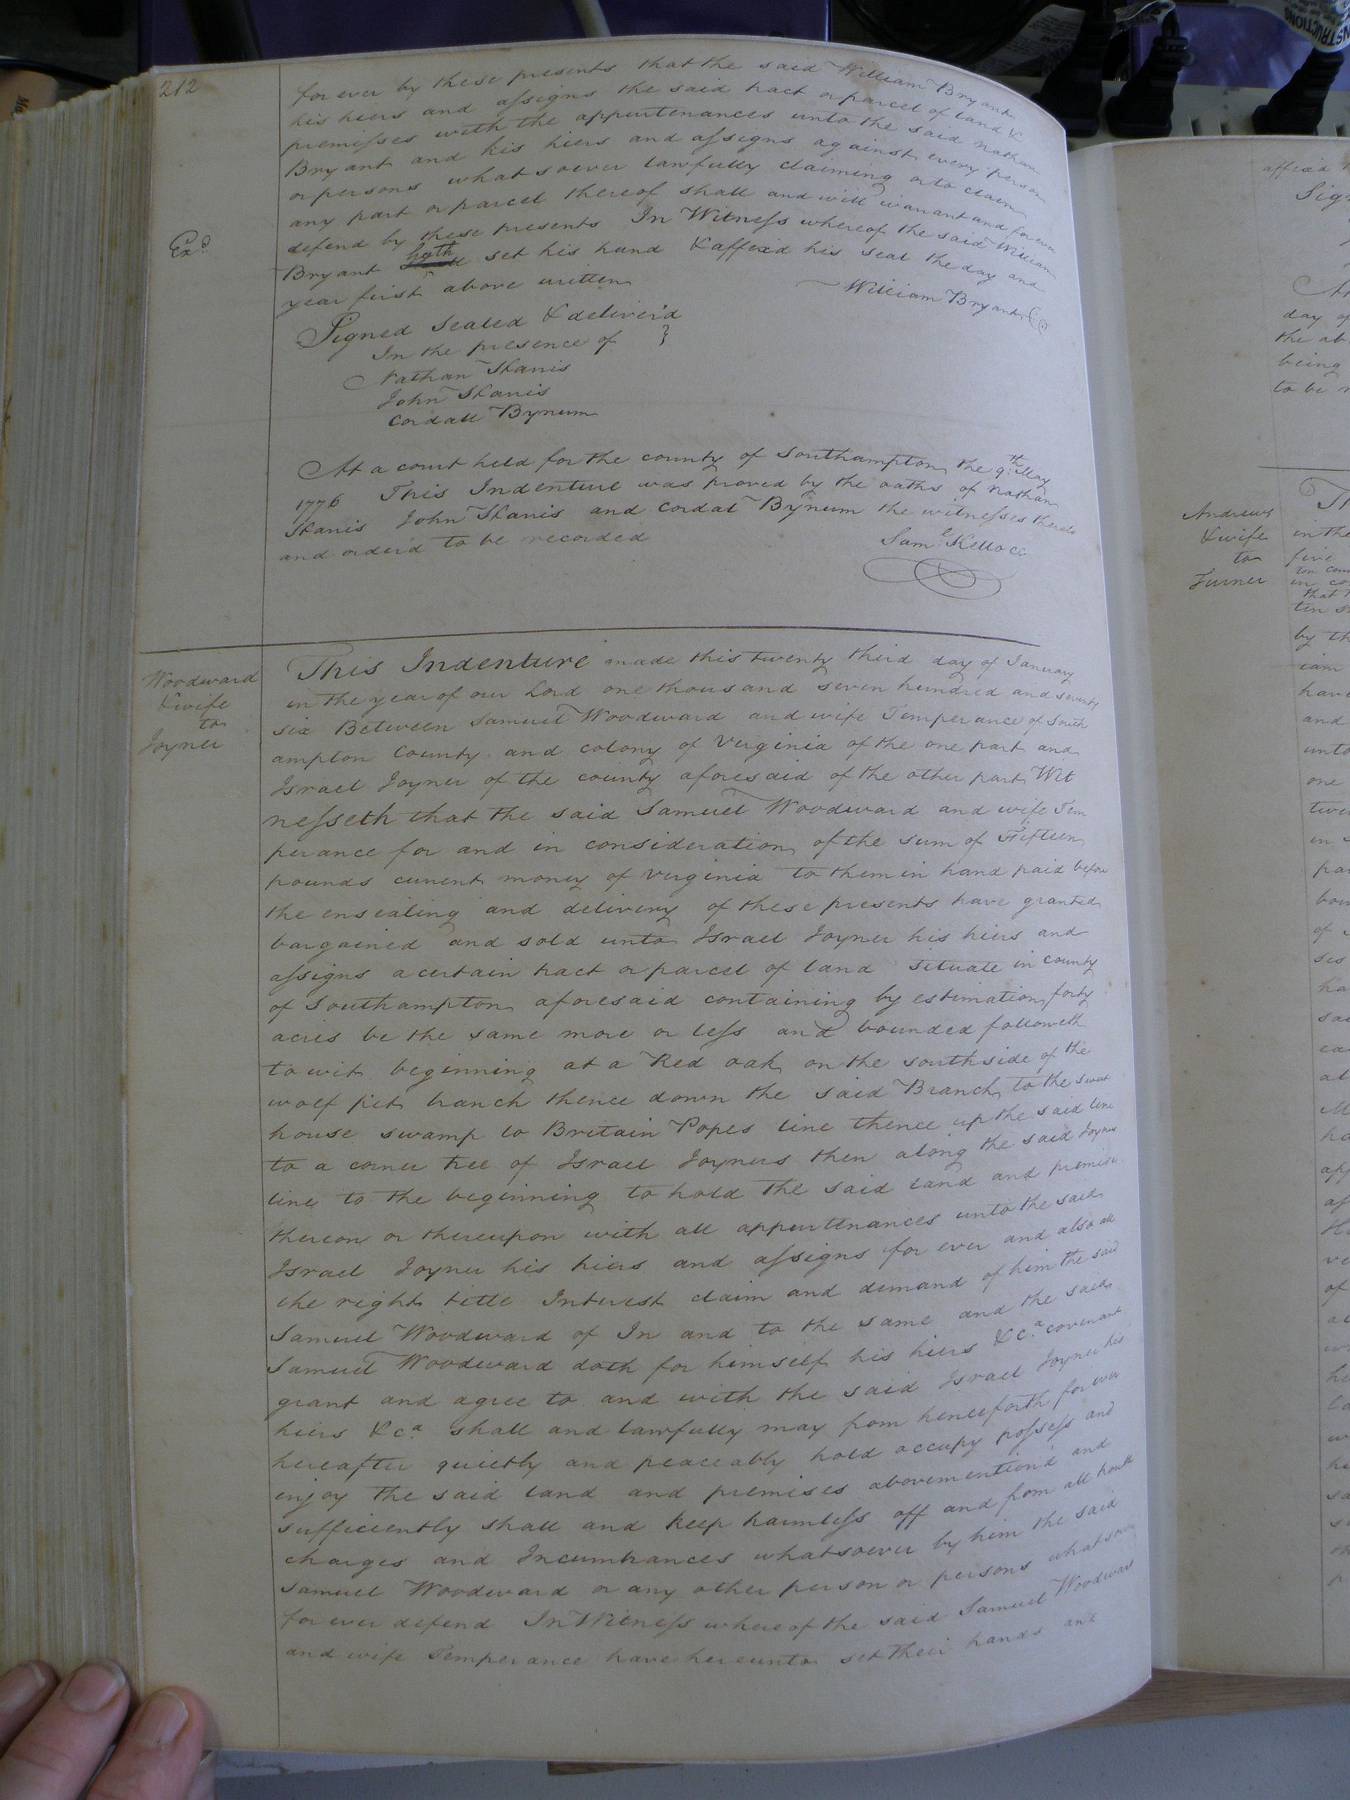 212
for ever by these presents that the said William Bryant
his hiers and assigns the said tract or parcel of land &
premisses with the appurtenances unto the said Nathan
Bryant and his hiers and assigns against every person
or persons whatsoever lawfully claiming or to claim
any part or parcel thereof shall and will warrant and for ever
defend by these presents In Witness whereof the said William
Bryant hath set his hand & affixd his seal the day and
year first above written
William Bryant
Exd.
Signed Sealed & deliver'd
In the presence of }
Nathan Harris
John Harris
Cordall Bynum
At a court held for the county of Southampton the 9th. May
1776 This Indenture was proved by the oaths of Nathan
Harris John Harris and Cordal Bynum the witnesses thereto
and orderd to be recorded
Saml. Kello cc
Woodward
& wife
to
Joyner
This Indenture made this twenty third day of January
in the year of our Lord one thousand seven hundred and seventy
six Between Samuel Woodward and wife Temperance of South
ampton County and colony of Virginia of the one part and
Israel Joyner of the county aforesaid of the other part Wit
nesseth that the said Samuel Woodward and wife Tem
perance for and in consideration of the sum of Fifteen
pounds current money of Virginia to them in hand paid before
the ensealing and delivery of these presents have granted
bargained and sold unto Israel Joyner his hiers and
assigns a certain tract or parcel of land situate in county
of Southampton aforesaid containing by estimation forty
acres be the same more or less and bounded followeth
to wit beginning at a Red oak on the south side of the
wolf pit branch thence down the said Branch to the sweat
house swamp to Britain Popes line thence up the said line
to a corner tree of Israel Joyners then along the said Joyners
line to the beginning to hold the said land and premises
thereon or thereupon with all appurttenances unto the said
Israel Joyner his hiers and assigns for ever and also all
the right title Interest claim and demand of him the said
Samuel Woodward of In and to the same and the said
Samuel Woodward doth for himself his hiers &ca. covenant
grant and agree to and with the said Israel Joyner his
hiers &ca. shall and lawfully may from henceforth for ever
hereafter quietly and peaceably hold occupy possess and
injoy the said land and premises abovemention'd and
sufficiently shall and keep harmless off and from all
charges and Incumbrances whatsoever by him the said
Samuel Woodward or any other person or persons whatsoever
for ever defend In Witness where of the said Samuel Woodward
and wife Temperance have hereunto set their hands and
affixd
Sign
day of
the ab
being
to be
Andrews
& wife
to
Turner
in the
five